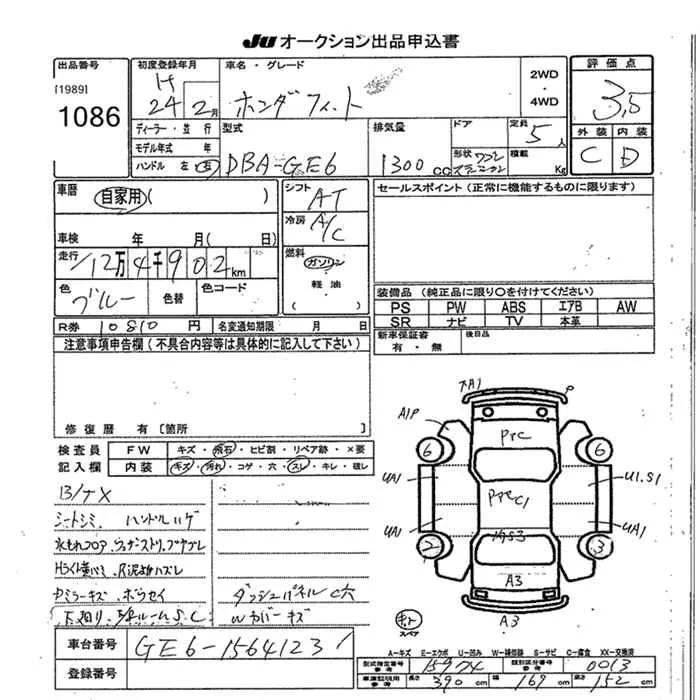 JU オークション出品申込書
出品番号
[1989]
1086
初度登録年月
H 24年 2月
車名・グレード
ホンダフィット
2WD
・
4WD
評価点
3,5
外装 内装
C D
ディーラー・並行
モデル年式 年
ハンドル 左 右
型式
DBA-GE6
排気量
1300 cc
ドア
形状 ワゴン
定員
5人
積載
Kg
車歴
自家用( )
シフト
AT
セールスポイント（正常に機能するものに限ります）
車検 年 月( 日)
冷房
A/C
走行
12万4千902km
燃料
ガソリン
軽油
( )
色
ブルー
色替
色コード
装備品（純正品に限り〇を付けてください）
PS PW ABS エアB AW
SR ナビ TV 本革
R券 10810円
名変通知期限 月 日
新車保証書
有・無
後日品
注意事項申告欄（不具合内容等は具体的に記入して下さい）
修復歴 有〔箇所 〕
検査員
記入欄
FW キズ・飛石・ヒビ割・リペア跡・×要
内装 キズ・汚れ・コゲ・穴・スレ・キレ・破レ
シートシミ、ハンドルハゲ
ダッシュパネルC穴
Wカバーキズ
車台番号
GE6-1564123
登録番号
A1
A1P
P
6
6
UA1
U1.S1
UA1
UA1
2
3
A3
A3
キト
スペア
A-キズ E-エクボ U-凹み W-補修跡 S-サビ C-腐食 XX-交換済
型式指定番号
参考
15974
類別区分番号
参考
0013
車庫証明用
参考
長さ 390cm
幅 169cm
高さ 152cm